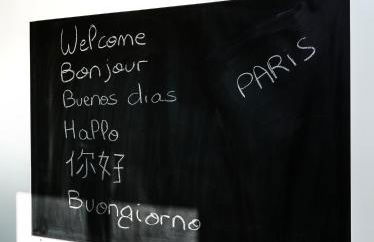 Welcome
Bonjour
Buenos dias
Hallo
你好
Buongiorno
PARIS